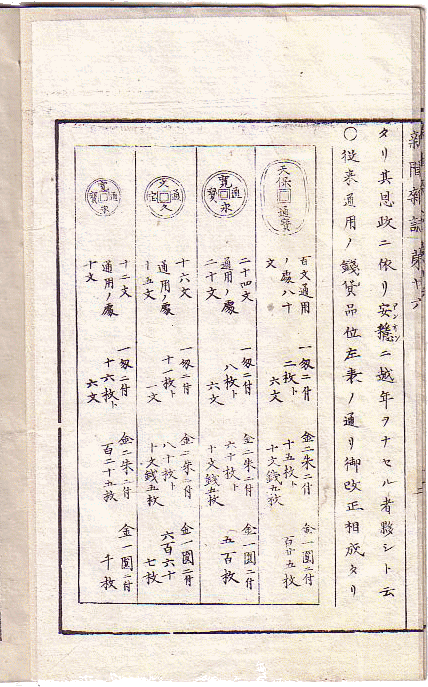 新聞雑誌第十六
タリ其恩政ニ依リ安穏ニ越年ヲナセル者夥シト云
アンオン
○従来通用ノ銭貨品位左表ノ通リ御改正相成タリ
天保通寳
百文通用
ノ處八十
文
一匁ニ付
二枚ト
六文
金二朱ニ付
十五枚ト
十文銭五枚
金一圓ニ付
百廿五枚
寛永通寳
二十四文
通用ノ處
二十文
一匁ニ付
八枚ト
六文
金二朱ニ付
六十枚ト
十文銭五枚
金一圓ニ付
五百枚
文久通宝
十六文
通用ノ處
十五文
一匁ニ付
十一枚ト
一文
金二朱ニ付
八十枚ト
十文銭五枚
金一圓ニ付
六百六十
七枚
寛永通寳
十二文
通用ノ處
十文
一匁ニ付
十六枚ト
六文
金二朱ニ付
百二十五枚
金一圓ニ付
千枚